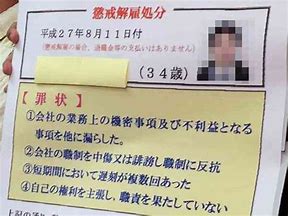 懲戒解雇処分
平成27年8月11日付
(懲戒解雇の場合、退職金等の支払いはありません)
(34歳)
【罪状】
①会社の業務上の機密事項及び不利益となる
事項を他に漏らした。
②会社の職制を中傷又は誹謗し職制に反抗
③短期間において遅刻が複数回あった
④自己の権利を主張し、職責を果たしていない